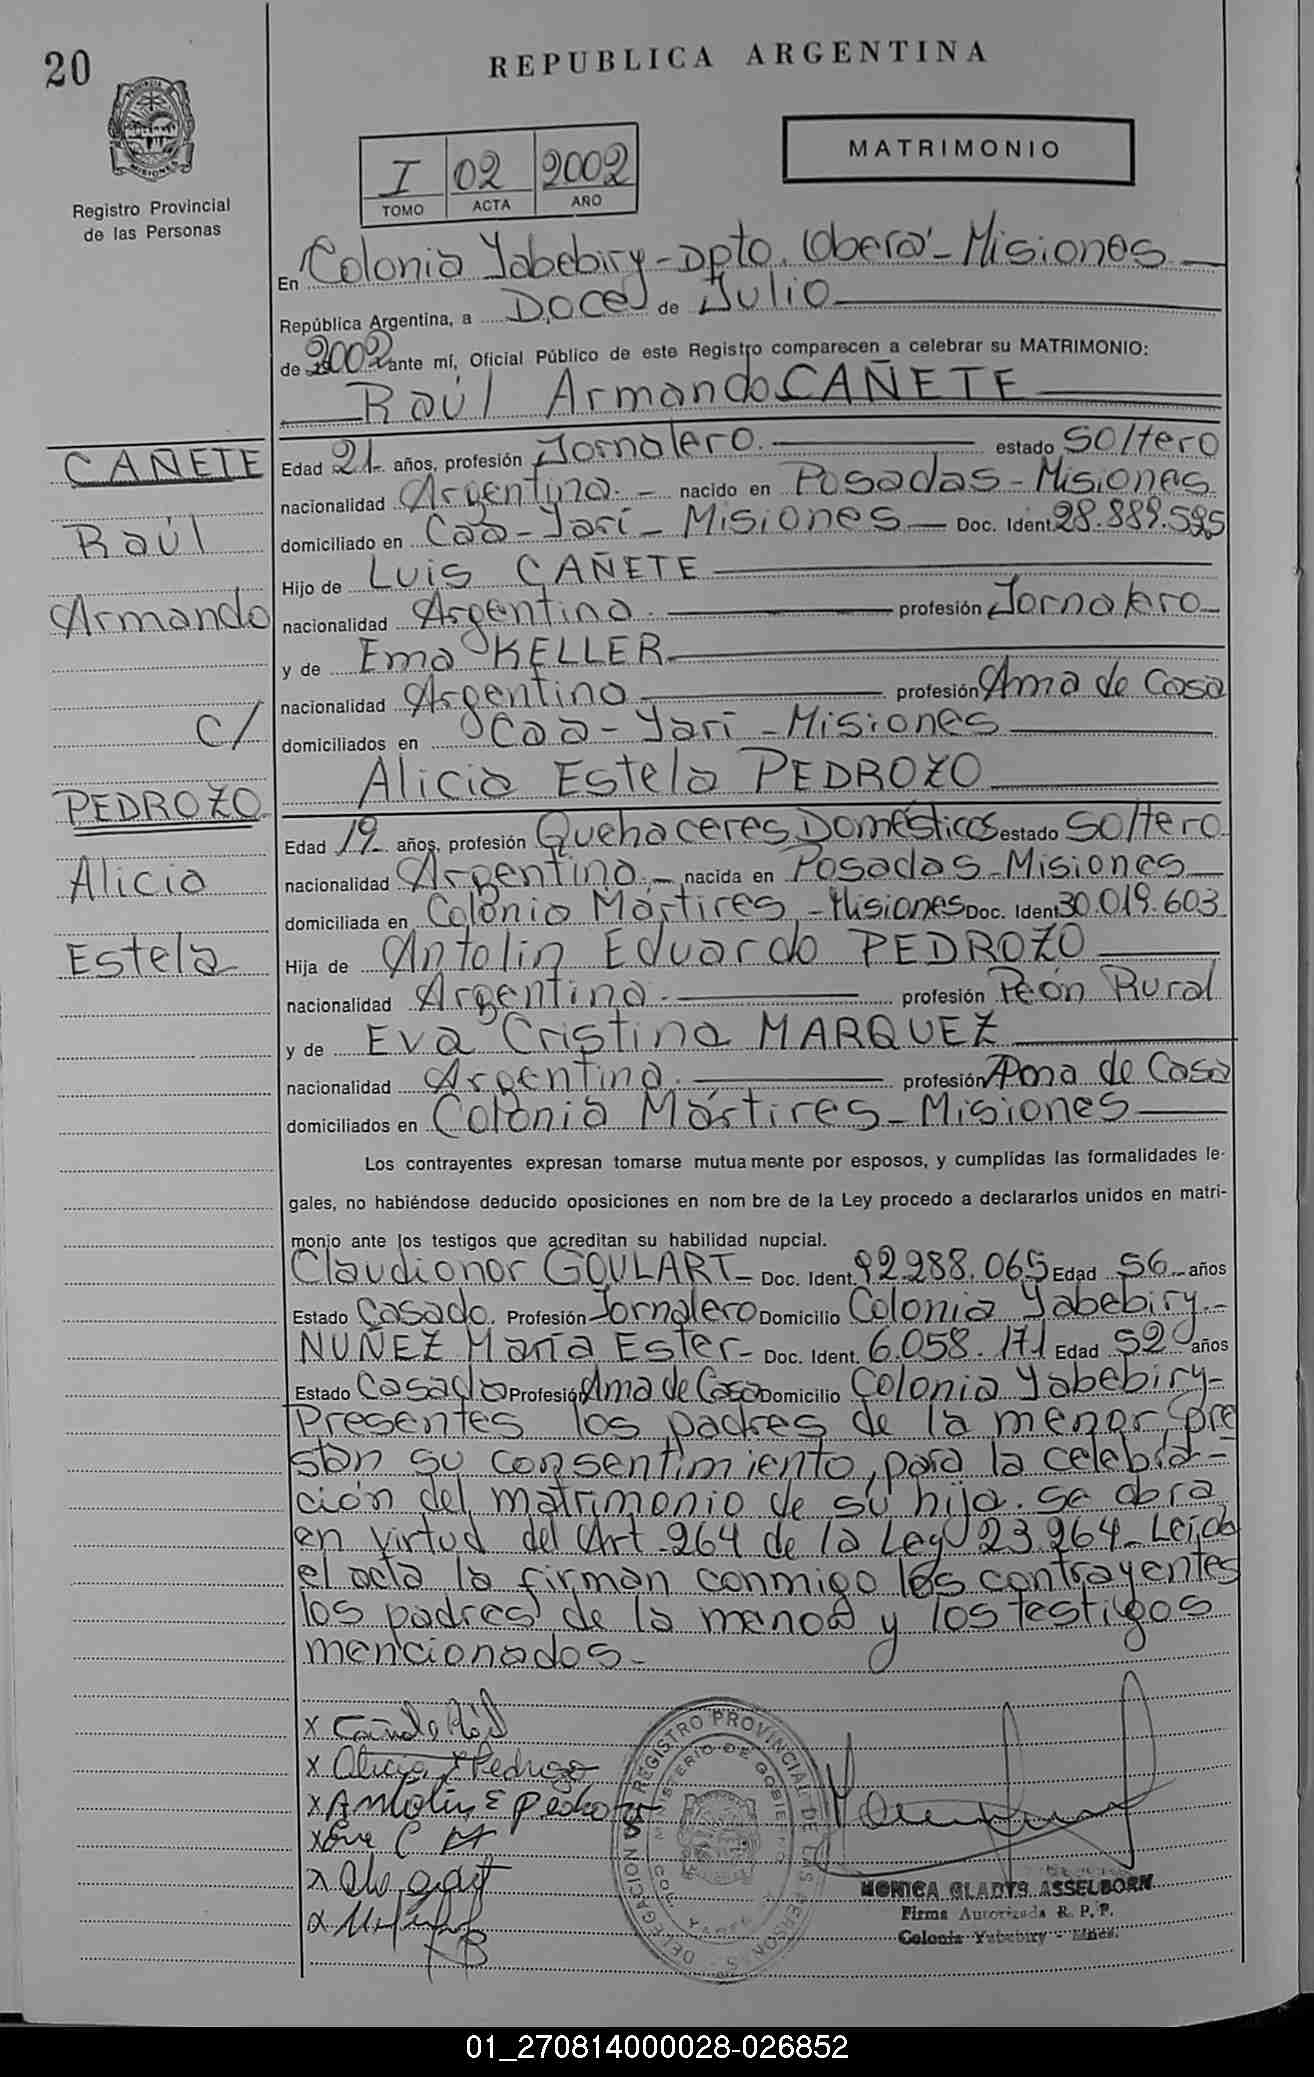 20
REPUBLICA ARGENTINA
PROVINCIA DE MISIONES
Registro Provincial
de las Personas
I 02 2002
TOMO ACTA AÑO
MATRIMONIO
En Colonia Yabebiry - Dpto. Oberá - Misiones
República Argentina, a Doce de Julio
de 2002 ante mí, Oficial Público de este Registro comparecen a celebrar su MATRIMONIO:
Raúl Armando CAÑETE
CAÑETE
Raúl
Armando
c/
PEDROZO
Alicia
Estela
Edad 21 años, profesión Jornalero. estado Soltero
nacionalidad Argentina. - nacido en Posadas - Misiones
domiciliado en Caa - Yarí - Misiones Doc. Ident. 28.889.595
Hijo de Luis CAÑETE
nacionalidad Argentina. profesión Jornalero
y de Ema KELLER
nacionalidad Argentina profesión Ama de Casa
domiciliados en Caa - Yarí - Misiones
Alicia Estela PEDROZO
Edad 19 años, profesión Quehaceres Domésticos estado Soltero
nacionalidad Argentina. - nacida en Posadas - Misiones
domiciliada en Colonia Mártires - Misiones Doc. Ident 30.019.603
Hija de Antolin Eduardo PEDROZO
nacionalidad Argentina. profesión Peón Rural
y de Eva Cristina MARQUEZ
nacionalidad Argentina. profesión Ama de Casa
domiciliados en Colonia Mártires - Misiones
Los contrayentes expresan tomarse mutua mente por esposos, y cumplidas las formalidades le-
gales, no habiéndose deducido oposiciones en nom bre de la Ley procedo a declararlos unidos en matri-
monio ante los testigos que acreditan su habilidad nupcial.
Claudionor GOULART - Doc. Ident. 92.288.065 Edad 56 años
Estado Casado. Profesión Jornalero Domicilio Colonia Yabebiry. -
NUÑEZ María Ester - Doc. Ident. 6.058.171 Edad 52 años
Estado Casada Profesión Ama de Casa Domicilio Colonia Yabebiry -
Presentes los padres de la menor, pre
stan su consentimiento, para la celebra-
ción del matrimonio de su hija. se obra
en virtud del Art. 264 de la Ley 23.264. Leida
el acta la firman conmigo los contrayentes
los padres de la menor y los testigos
mencionados. -
x Cañete Raúl
x Alicia E Pedrozo
x Antolin E Pedrozo
x Eva C M
REGISTRO PROVINCIAL DE LAS PERSONAS
DELEGACION
MINISTERIO DE GOBIERNO
MONICA GLADYS ASSELBORN
Firma Autorizada R. P. P.
Colonia Yabebiry - Mnes.
01_270814000028-026852